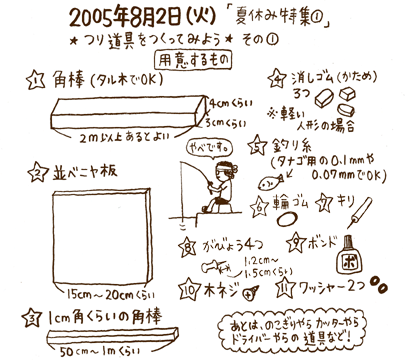 2005年8月2日(火)「夏休み特集①」
★つり道具をつくってみよう★ その①
用意するもの
1 角棒(タル木でOK)
4cmくらい
3cmくらい
2m以上あるとよい
2 並ベニヤ板
15cm〜20cmくらい
3 1cm角くらいの角棒
50cm〜1mくらい
やべです。
4 消しゴム(かため)
3つ
※軽い
人形の場合
5 釣り糸
(タナゴ用の0.1mmや
0.07mmでOK)
6 輪ゴム
7 キリ
8 がびょう4つ
1.2cm〜
1.5cmくらい
9 ボンド
ボ
10 木ネジ
11 ワッシャー2つ
あとは、のこぎりやら カッターやら
ドライバーやらの 道具など!